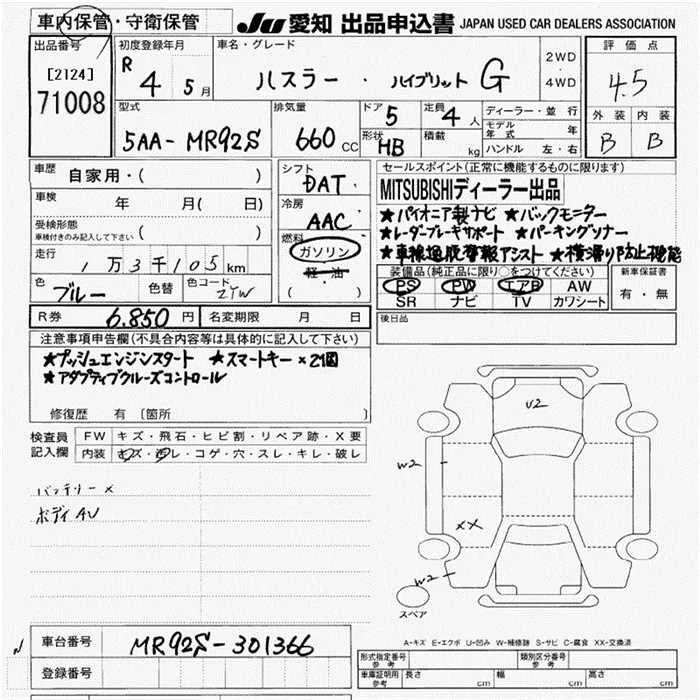 車内保管・守衛保管
JU 愛知 出品申込書 JAPAN USED CAR DEALERS ASSOCIATION
出品番号
[2124]
71008
初度登録年月
R 4 5月
車名・グレード
ハスラー・ハイブリット G
2WD
4WD
評価点
4.5
外装 内装
B B
型式
5AA-MR92S
排気量
660 cc
ドア 5
形状 HB
定員 4人
積載 kg
ディーラー・並行
モデル年式 年
ハンドル 左・右
車歴 自家用・( )
車検 年 月( 日)
受検形態
車検付きのみ記入して下さい ( )
走行 1万3千105km
色 ブルー 色替 色コード ZYW
シフト
DAT
冷房
AAC
燃料
ガソリン
軽・油
( )
セールスポイント(正常に機能するものに限ります)
MITSUBISHIディーラー出品
★パイオニア製ナビ ★バックモニター
★レーダーブレーキサポート ★パーキングソナー
★車線逸脱警報アシスト ★横滑り防止機能
装備品(純正品に限り○をつけてください)
PS PW エアB AW
SR ナビ TV カワシート
新車保証書
有・無
R券 6.850円 名変期限 月 日
後日品
注意事項申告欄(不具合内容等は具体的に記入して下さい)
★プッシュエンジンスタート ★スマートキー×2個
★アダプティブクルーズコントロール
修復歴 有 [箇所 ]
検査員記入欄
FW キズ・飛石・ヒビ割・リペア跡・X要
内装 キズ・汚レ・コゲ・穴・スレ・キレ・破レ
バッテリー×
ボディAU
U2
W2
XX
W2
スペア
A-キズ E-エクボ U-凹み W-補修跡 S-サビ C-腐食 XX-交換済
車台番号 MR92S-301366
登録番号
形式指定番号 参考
類別区分番号 参考
車庫証明用 参考 長さ cm 幅 cm 高さ cm